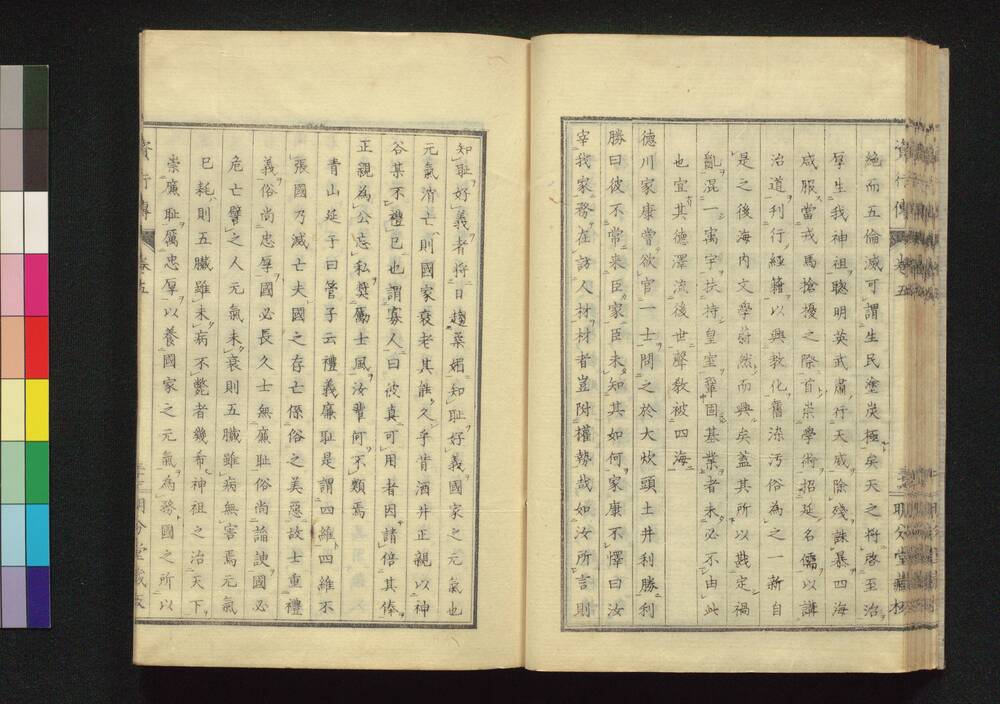 絶而五倫滅可謂生民塗炭極矣天之將啓至治
厚生我神祖聰明英武肅行天威除殘誅暴四海
咸服當戎馬搶擾之際首崇學術招延名儒以講
治道刊行經籍以興教化舊染汚俗為之一新自
是之後海内文學蔚然而興矣蓋其所以戡定禍
亂混一寓宇扶持皇室鞏固基業者未必不由此
也宜其德澤流後世聲敎被四海
德川家康嘗欲官一士問之於大炊頭土井利勝利
勝曰彼不常來臣家臣未知其如何家康不懌曰汝
宰我家務在訪人材材者豈附權勢哉如汝所言則
知恥好義者將日趨桑媚知恥好義國家之元氣也
元氣消亡則國家衰老其能久乎肯酒井正親以神
谷某不禮已也謂寡人曰彼真可用者因請倍其俸
正親為公忘私奨厲士風汝輩何不類焉
青山延于曰管子云禮義廉恥是謂四維四維不
張國乃滅亡夫國之存亡係俗之美惡故士重禮
義俗尚忠厚國必長久士無廉恥俗尚諂諛國必
危亡譬之人元氣未衰則五臟雖病無害焉元氣
已耗則五臟雖未病不斃者幾希神祖之治天下
崇廉恥厲忠厚以養國家之元氣為務國之所以
資行傳
卷五
明分堂藏板